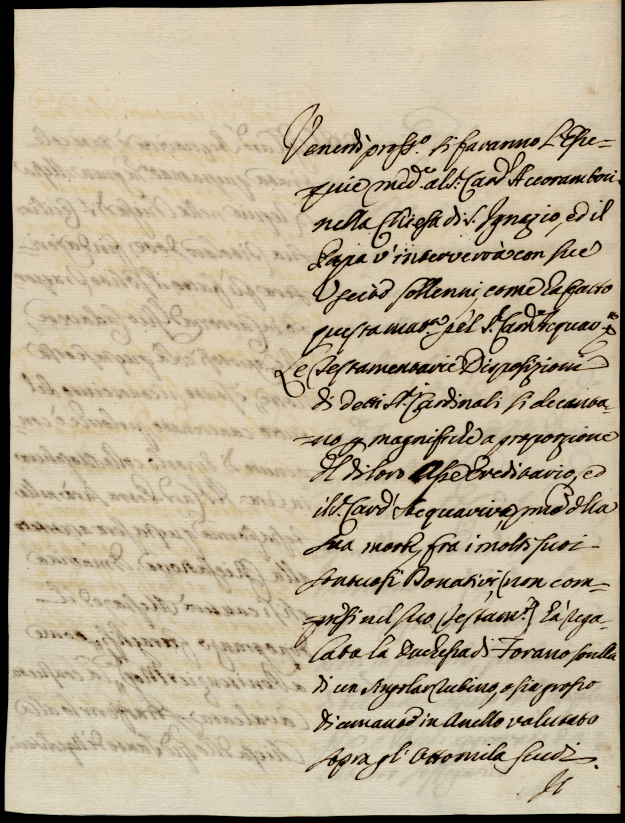 Venerdì pross.o si faranno l'Ese=
quie med.e al S.r Card.l Accoramboni
nella Chiesa di S. Ignazio, ed il
Papa v'interverrà con
sollenni, come ha fatto
questa matt.a p el S.r Card.le Acquav.a
Le Testamentarie Disposizioni
di detti S.ri Cardinali si decanta=
=no p magnifiche a proporzione
del di loro Asse Ereditario, ed
il S.r Card.l Acquaviva, prima della
sua morte, fra i molti suoi
sontuosi Donativi (non com=
presi nel suo Testam.to) hà rega=
lato la Duchessa di Forano sorella
di un singolar Rubino, o sia grosso
diamante in Anello valutato
sopra gl'Ottomila Scudi.
Il